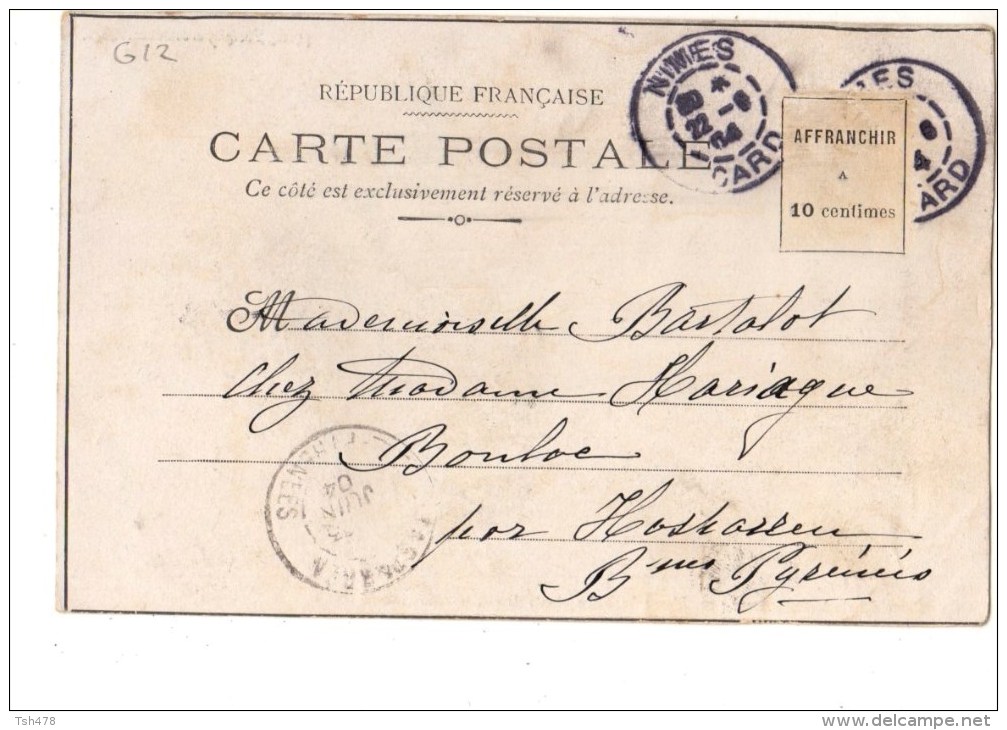 G12
RÉPUBLIQUE FRANÇAISE
CARTE POSTALE
Ce côté est exclusivement réservé à l'adresse.
NIMES
22
04
GARD
MES
ARD
AFFRANCHIR
A
10 centimes
Mademoiselle Bartolot
chez Madame Hariague
Bonloc
par Hasparren
Bses Pyrénées
PYRENEES
JUIN
04
HASPARREN
Tsh478
www.delcampe.net